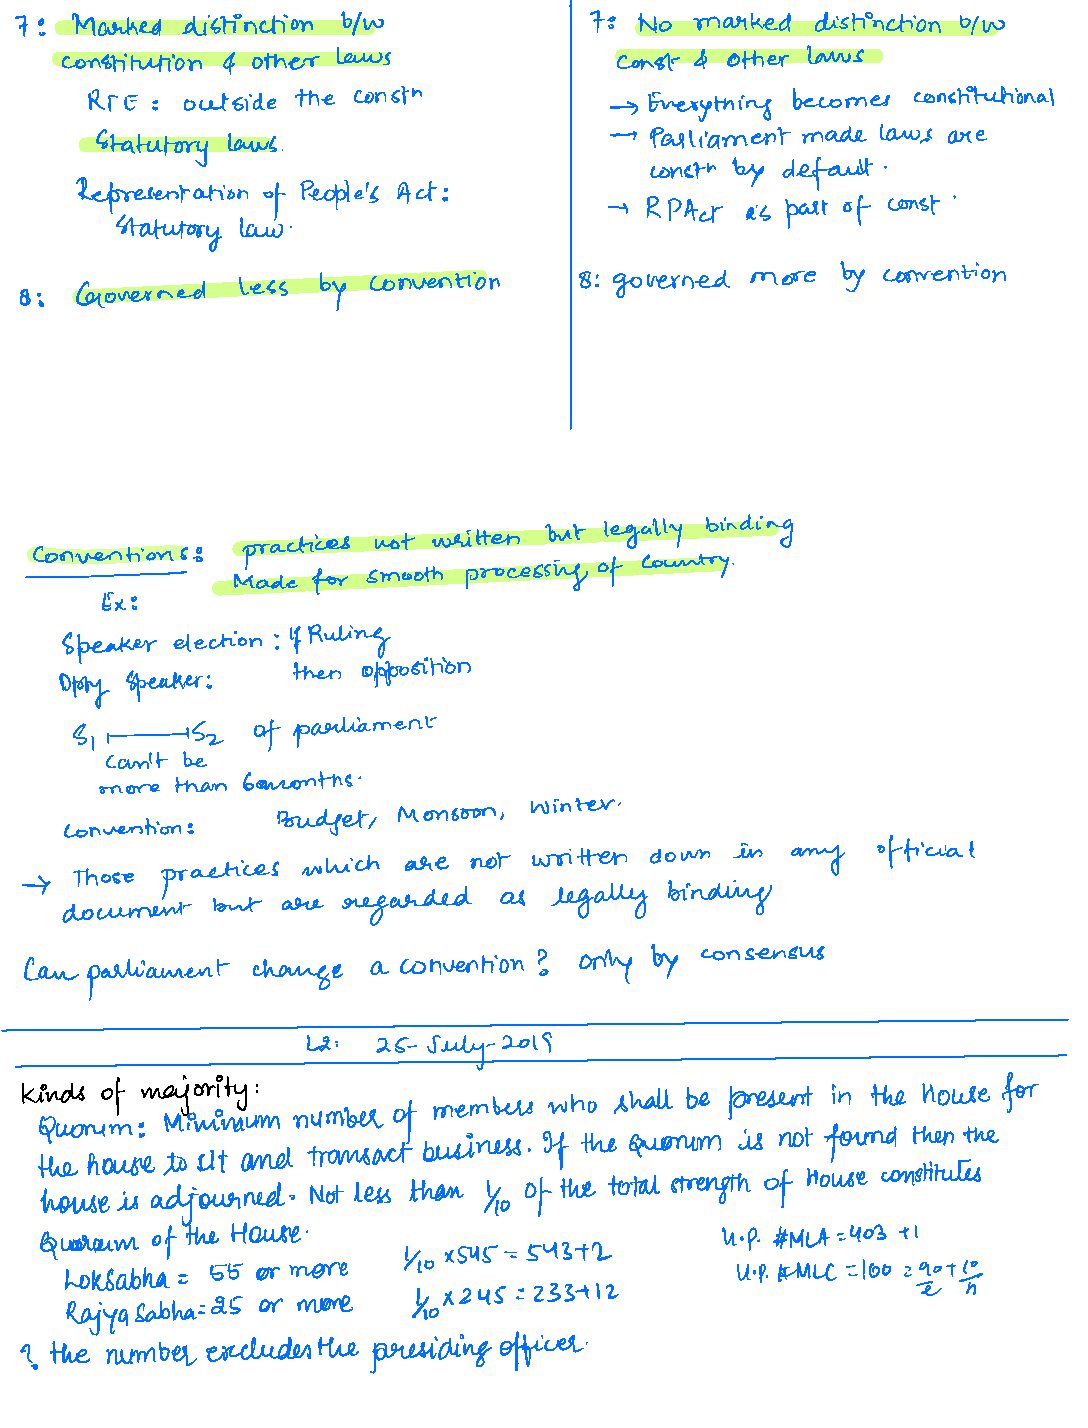 7: Marked distinction b/w
constitution & other laws
RTE: outside the constn
Statutory laws.
Representation of People's Act:
Statutory law.
8: Governed less by convention
7: No marked distinction b/w
const & other laws
→ Everything becomes constitutional
→ Parliament made laws are
constn by default.
→ RPAct is part of const.
8: governed more by convention
Conventions: practices not written but legally binding
Made for smooth processing of Country.
Ex:
Speaker election: if Ruling
Dpty Speaker: then opposition
S1 S2 of parliament
can't be
more than 6 months.
convention: Budget, Monsoon, Winter.
→ Those practices which are not written down in any official
document but are regarded as legally binding
Can parliament change a convention? only by consensus
L2: 25-July-2019
Kinds of majority:
Quorum: Minimum number of members who shall be present in the House for
the house to sit and transact business. If the quorum is not found then the
house is adjourned. Not less than 1/10 of the total strength of House constitutes
Quorum of the House.
LokSabha = 55 or more 1/10 x 545 = 543+2 U.P. #MLA = 403 +1
Rajya Sabha = 25 or more 1/10 x 245 = 233+12 U.P. #MLC = 100 = 90/e + 10/n
? the number excludes the presiding officer.